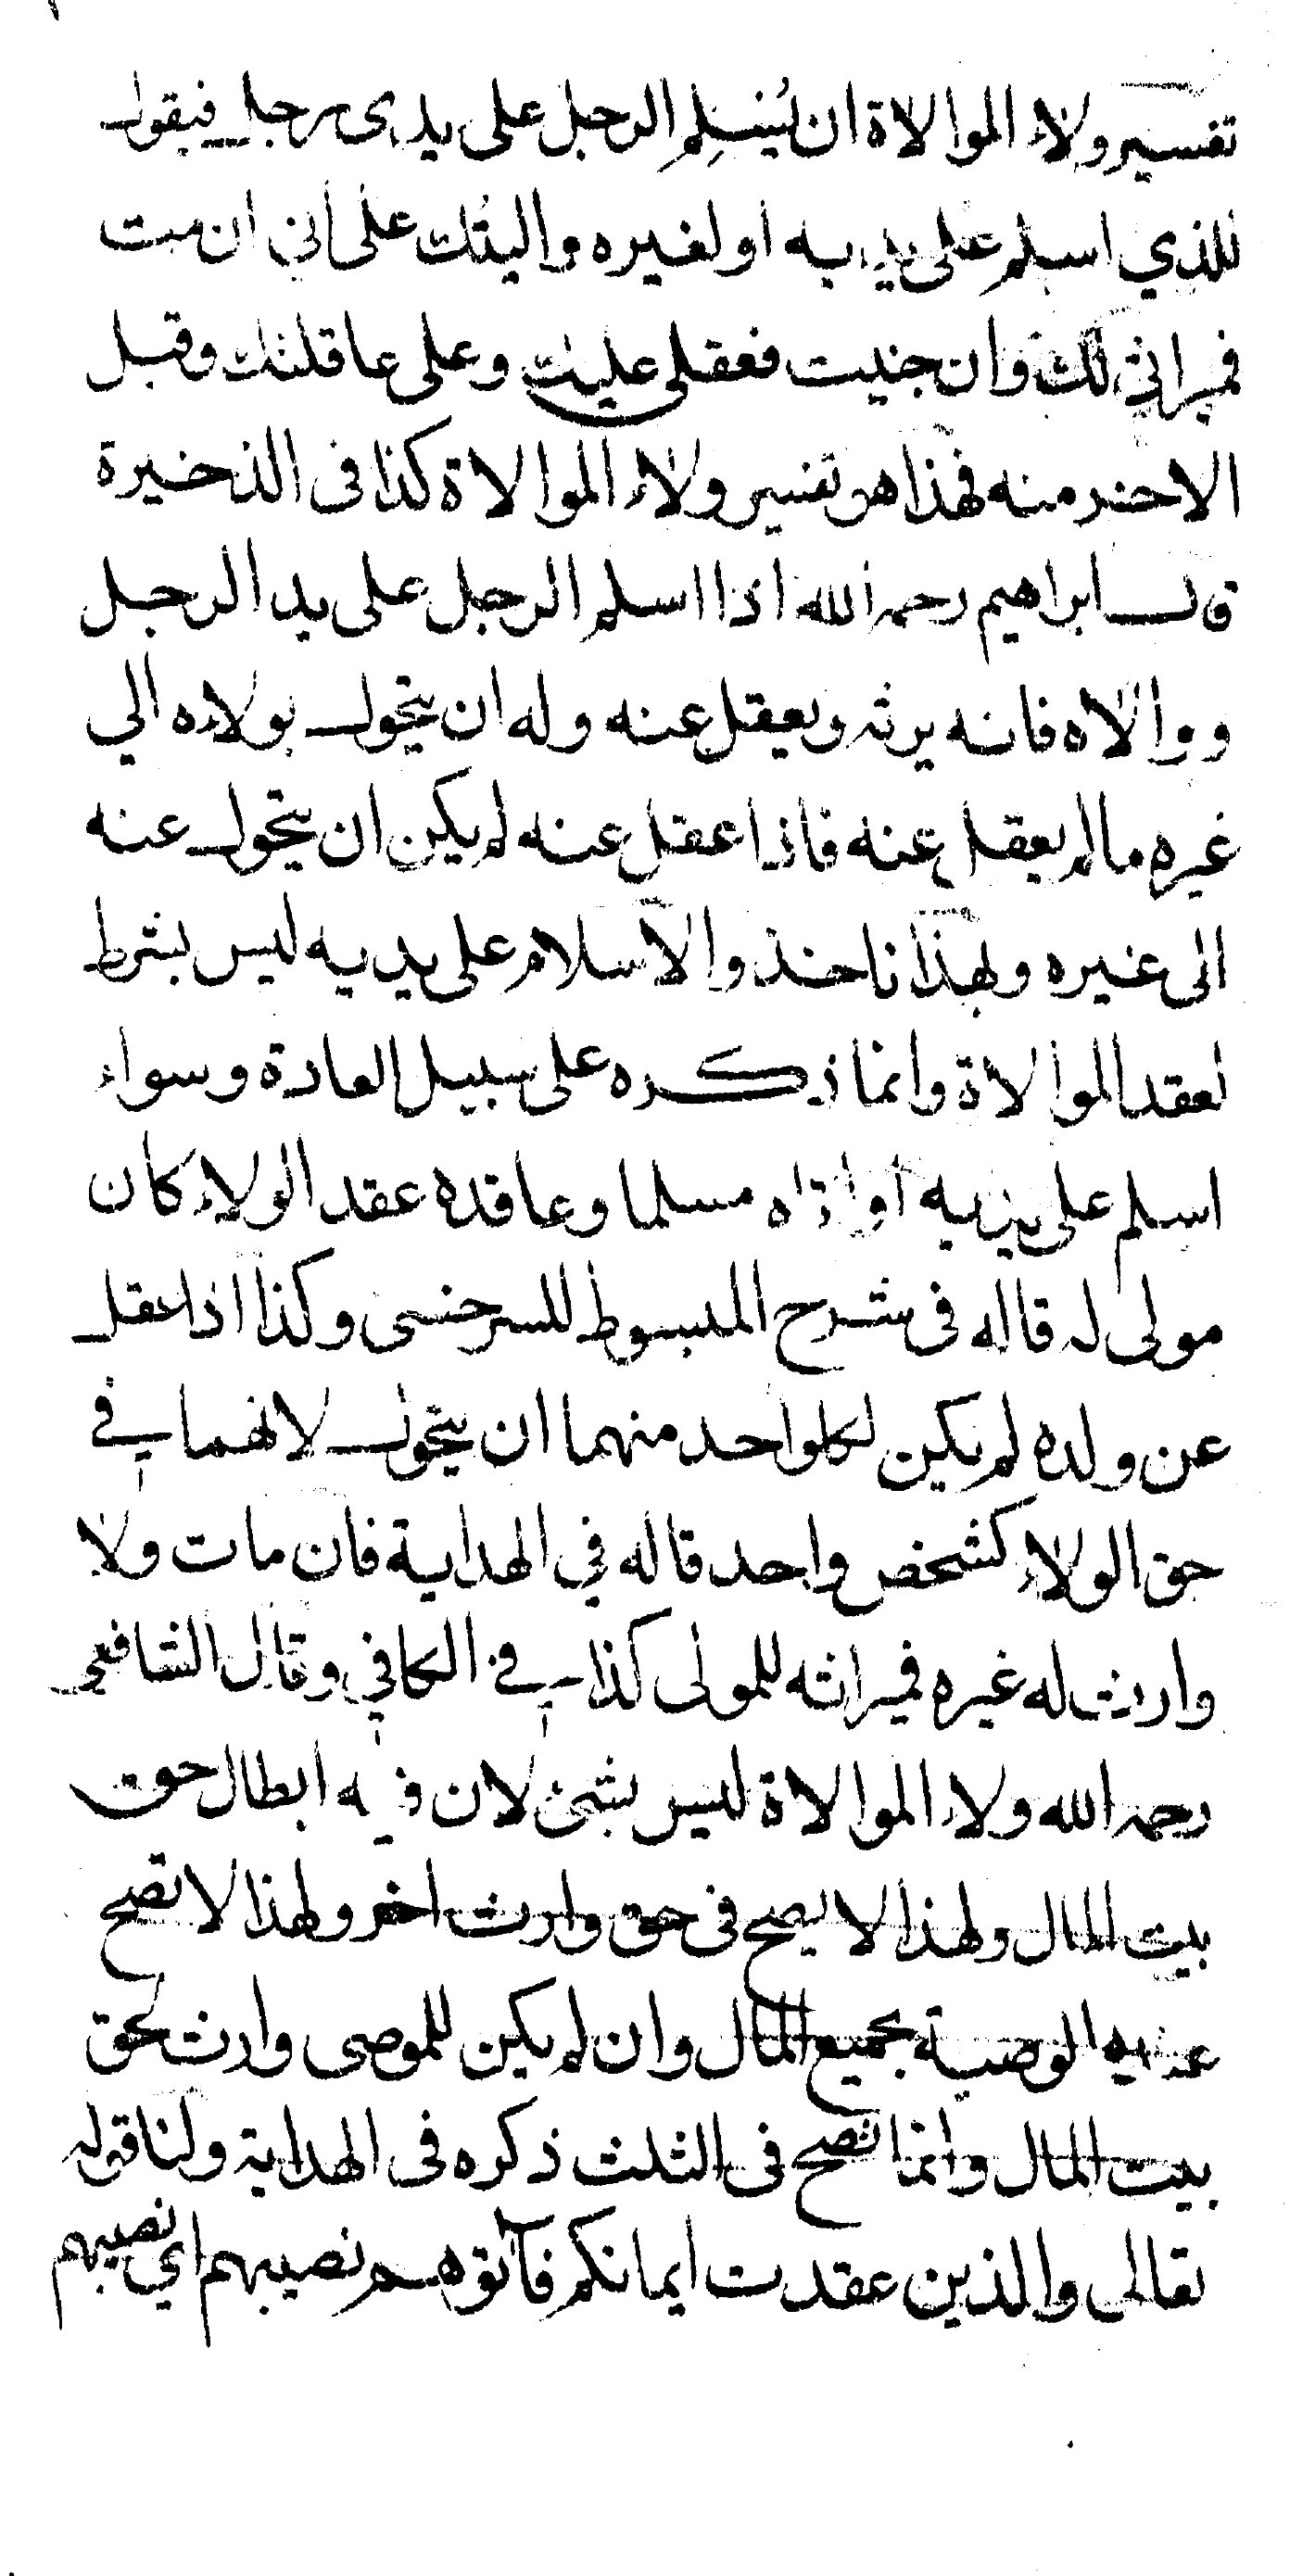 تفسير ولاء الموالاة ان يُسلِم الرجل على يدى رجل فيقول
للذي اسلم على يديه او لغيره واليتُك على أني ان مت
فميراثي لك وان جنيت فعقلى عليك وعلى عاقلتك وقبل
الاخر منه فهذا هو تفسير ولاء الموالاة كذا فى الذخيرة
قال ابراهيم رحمه الله اذا اسلم الرجل على يدا الرجل
ووالاه فانه يرثه ويعقل عنه وله ان يتحول بولاءه الي
غيره مالم يعقل عنه فاذا عقل عنه لم يكن ان يتحول عنه
الى غيره وبهذا ناخذ والاسلام على يديه ليس بشرط
لعقد الموالاة وانما ذكره على سبيل العادة وسواء
اسلم على يديه او اتاه مسلما وعاقده عقد الولاء كان
مولى له قاله فى شرح المبسوط للسرخسى وكذا اذا عقل
عن ولده لم يكن لكلواحد منهما ان يتحول لانهما في
حق الولاء كشخص واحد قاله في الهداية فان مات ولا
وارث له غيره فميراثه للمولى كذا في الكافي وقال الشافعى
رحمه الله ولاء الموالاة ليس بشئ لان فيه ابطال حق
بيت المال ولهذا لا يصح فى حق وارث اخر ولهذا لا تصح
عنده الوصية بجميع المال وان لم يكن للموصى وارث لحق
بيت المال وانما تصح فى الثلث ذكره فى الهداية ولنا قوله
تعالى والذين عقدت ايمانكم فآتوهم نصيبهم اي نصيبهم